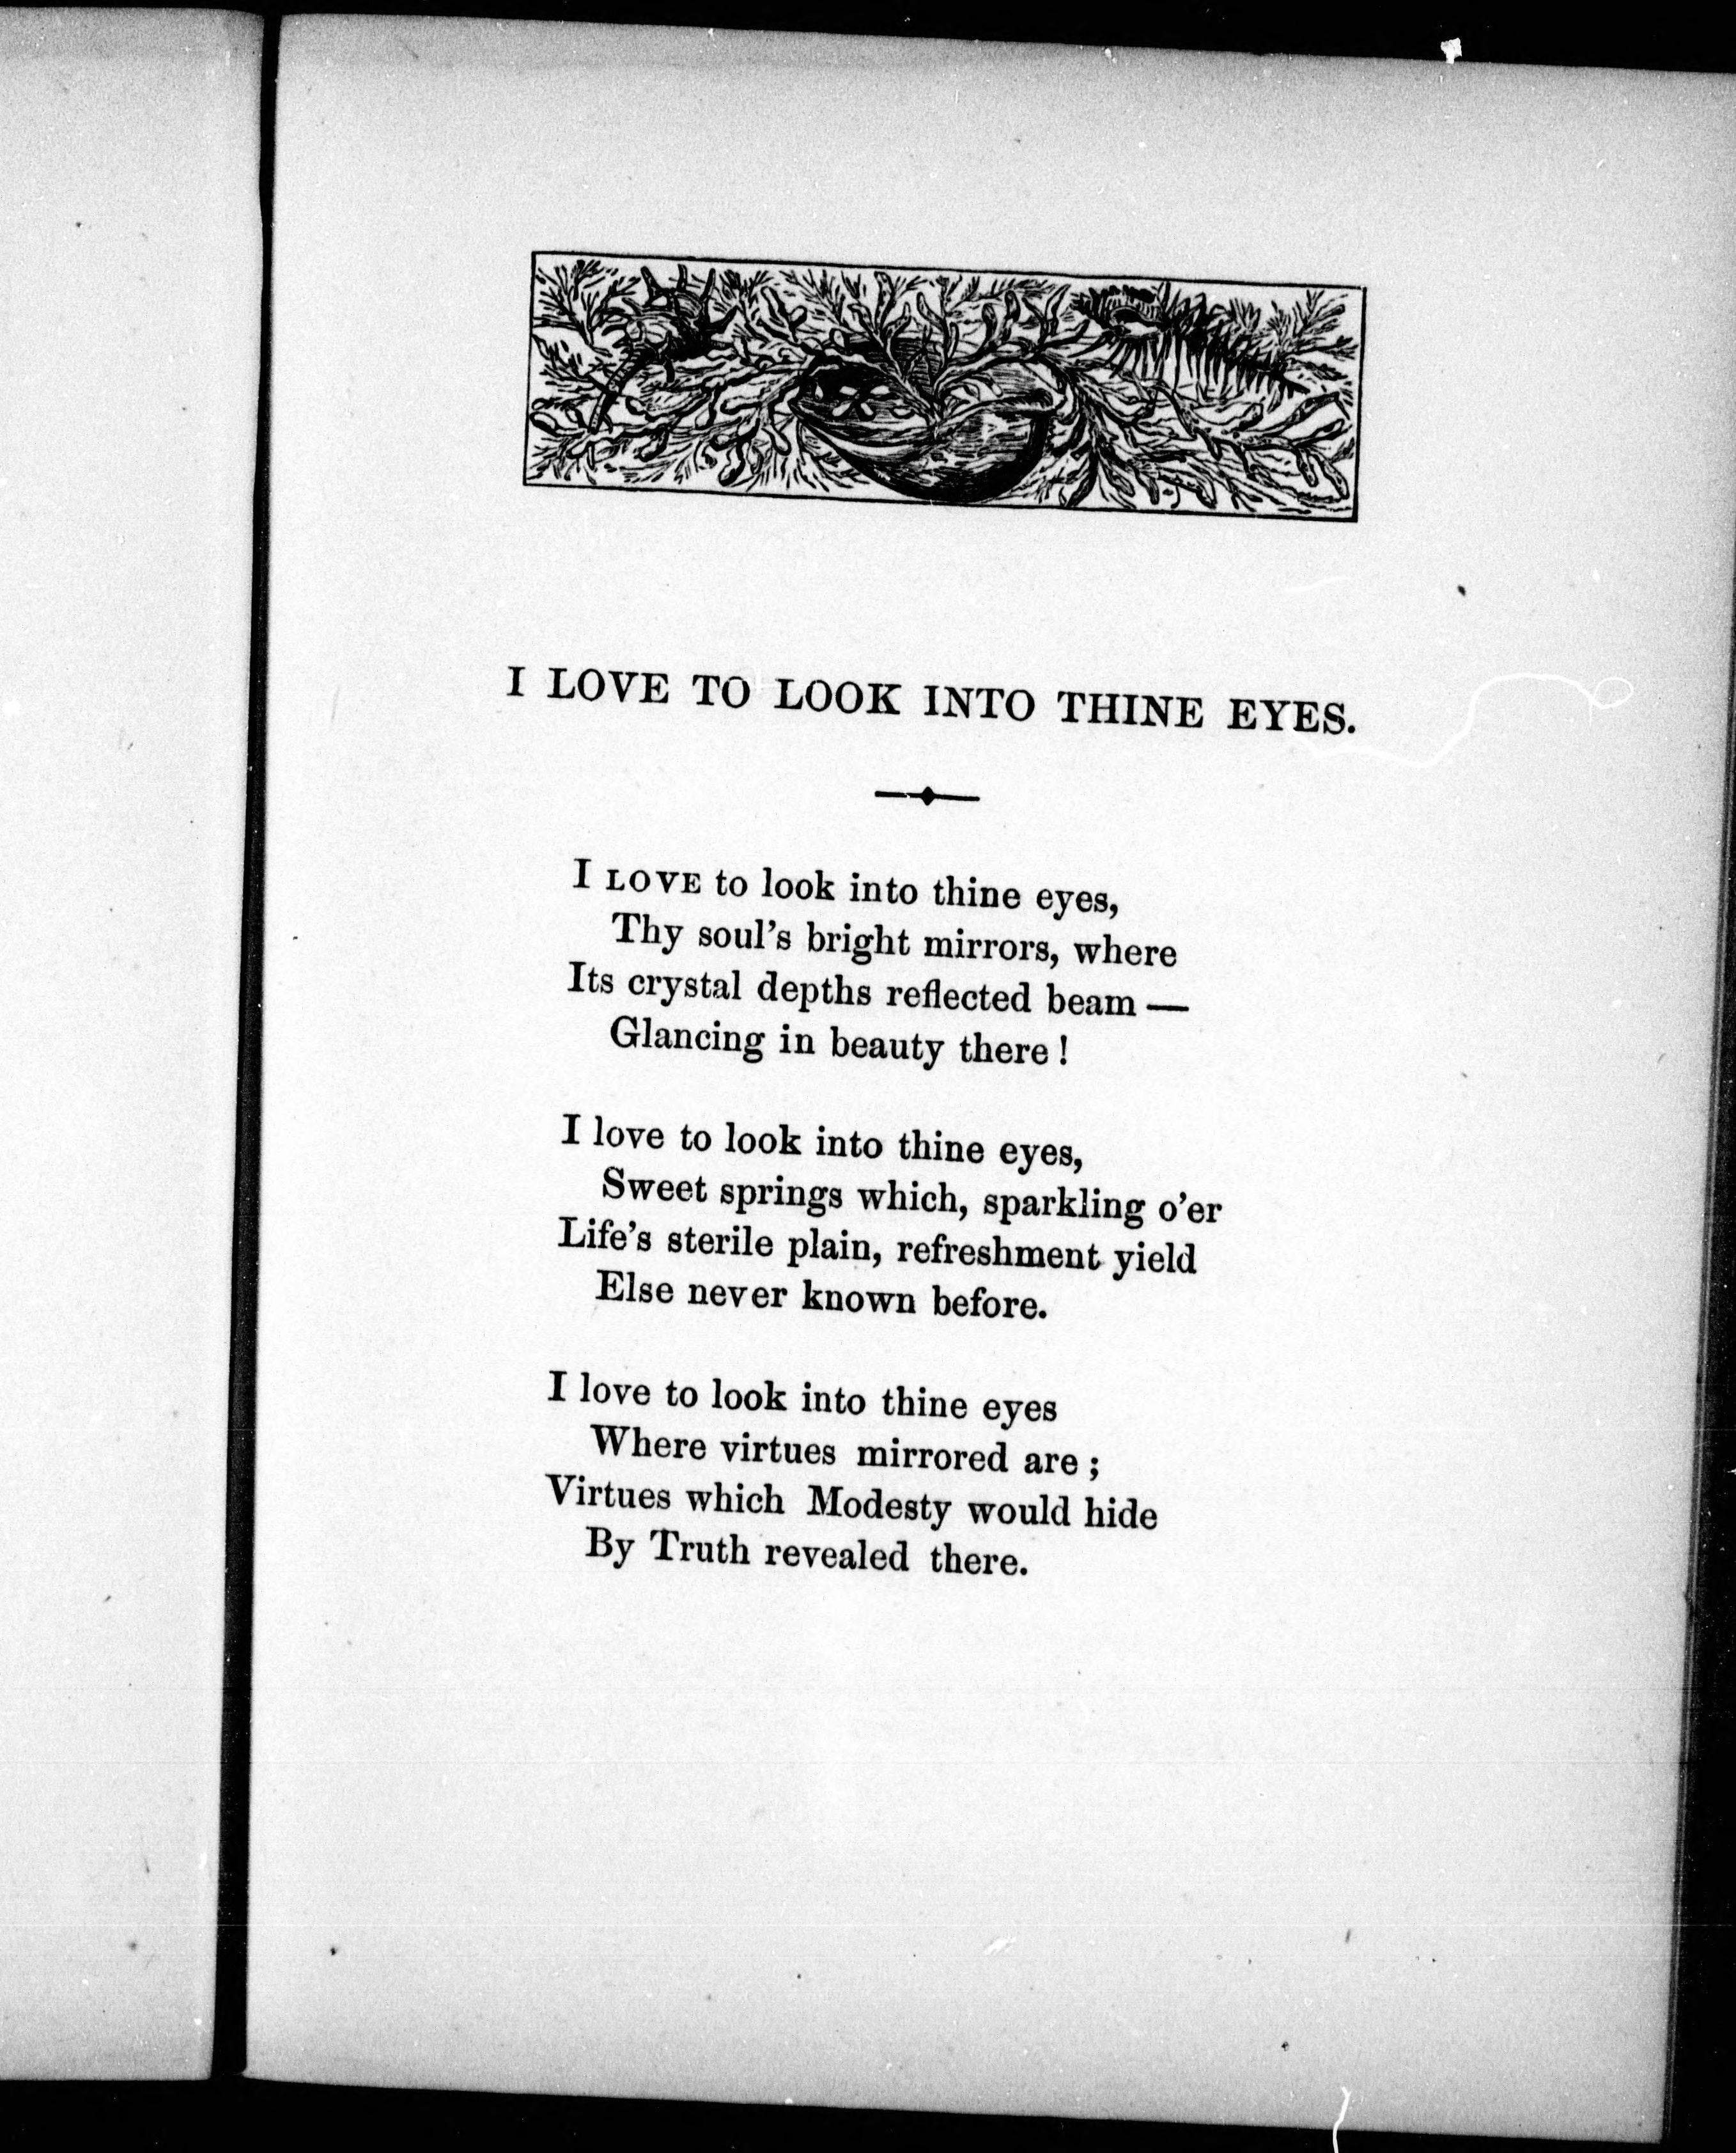 I LOVE TO LOOK INTO THINE EYES.
I LOVE to look into thine eyes,
Thy soul's bright mirrors, where
Its crystal depths reflected beam —
Glancing in beauty there !
I love to look into thine eyes,
Sweet springs which, sparkling o'er
Life's sterile plain, refreshment yield
Else never known before.
I love to look into thine eyes
Where virtues mirrored are ;
Virtues which Modesty would hide
By Truth revealed there.